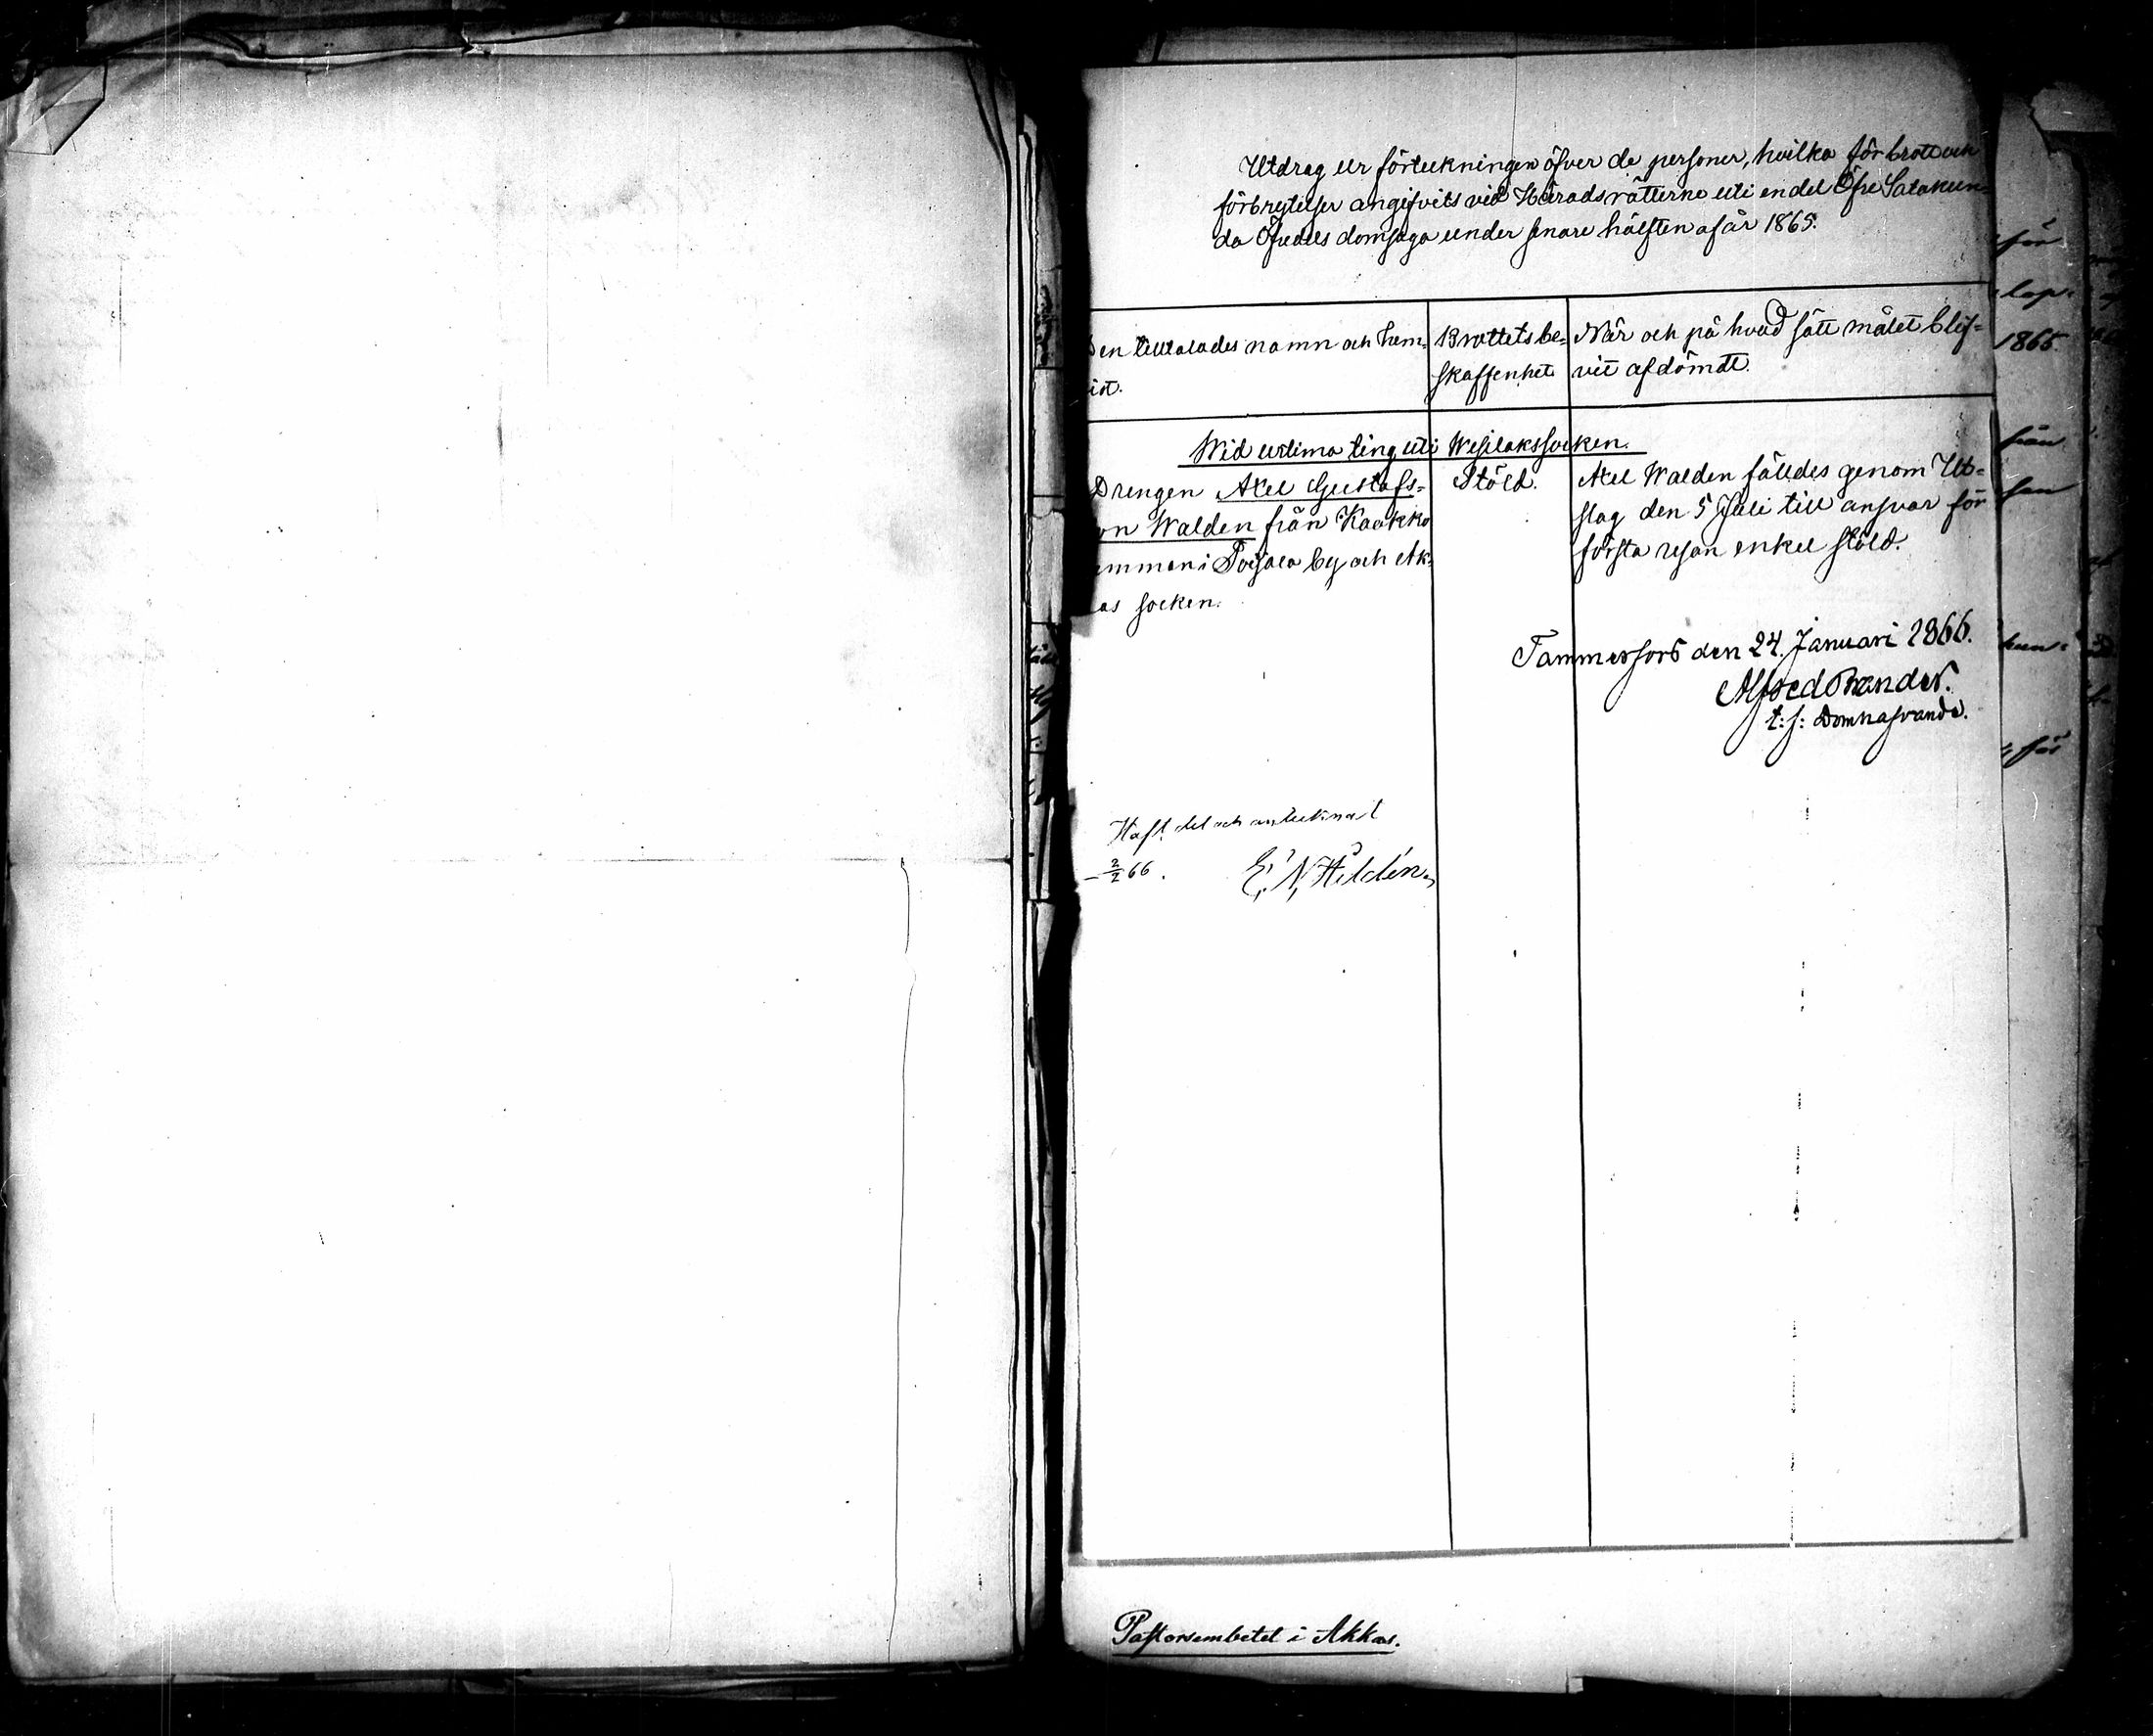 Utdrag ur förteckningen öfver de personer, hvilka för brott och
förbrytelser angifvits vid Häradsrätterne uti en del Öfre Satakun-
da Öfredels domsaga under senare hälften af år 1865.
Den tilltalades namn och hem-
ist.
Brottets be-
skaffenhet
När och på hvad sätt målet blif-
vit afdömdt.
Wid urtima ting uti Wesilakssocken.
Drengen Axel Gustafs-
on Walden från Kaakko
emman i Toijala by och Ak-
as socken.
Stöld.
Axel Walden fälldes genom Ut-
slag den 5 Juli till ansvar för
första resan enkel stöld.
Tammerfors den 24. Januari 1866.
Alfred Brander.
t: f: Domhafvande.
Haft del och antecknat
2/2 66. E. N. Hildén
Pastorsembetet i Akkas.
för
lap-
1865.
från
son
kun-
för